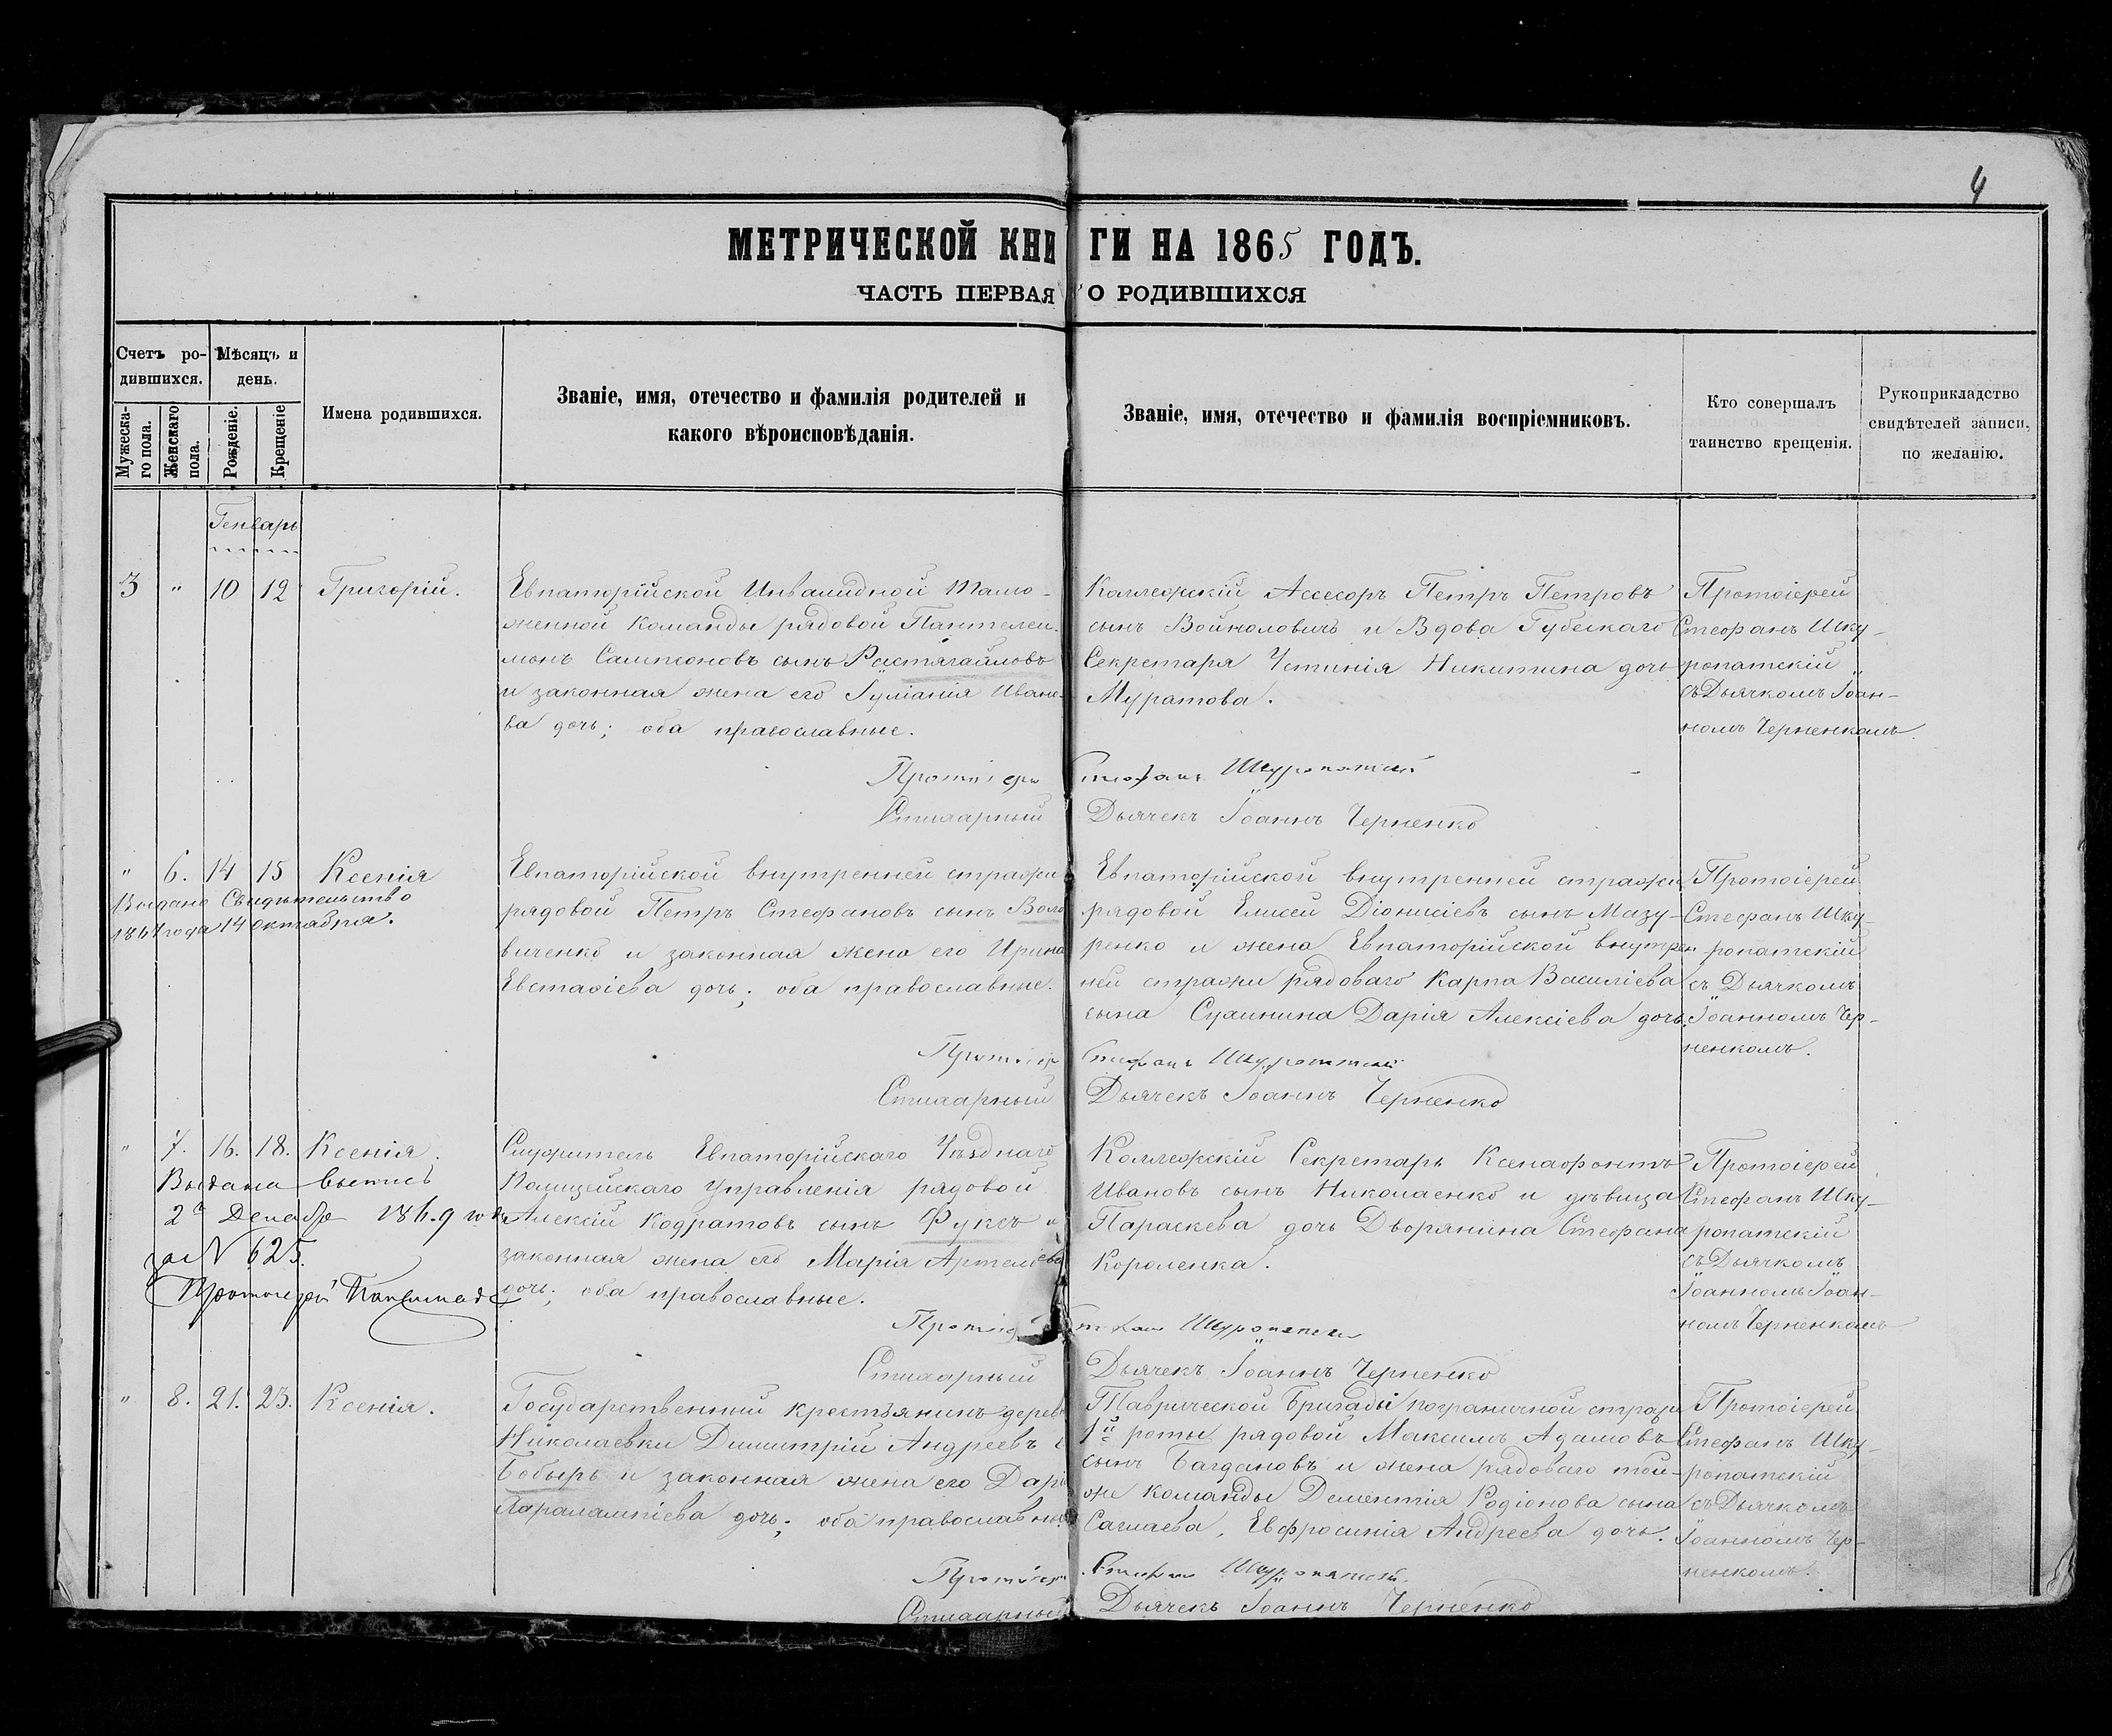 4
МЕТРИЧЕСКОЙ КНИГИ НА 1865 ГОДЪ.
ЧАСТЬ ПЕРВАЯ О РОДИВШИХСЯ
Счетъ ро-
дившихся.
Мужеска-
го пола.
Женскаго
пола.
Мѣсяцъ и
день.
Рожденіе.
Крещеніе
Имена родившихся.
Званіе, имя, отечество и фамилія родителей и
какого вѣроисповѣданія.
Званіе, имя, отечество и фамилія воспріемниковъ.
Кто совершалъ
таинство крещенія.
Рукоприкладство
свидѣтелей записи,
по желанію.
Генварь
3 " 10 12 Григорій.
Евпаторійской Инвалидной Тамо-
женной Команды рядовой Пантелеи-
монъ Сампсоновъ сынъ Растягайловъ
и законная жена его Іуліанія Ивано-
ва дочь; оба православные.
Коллежскій Ассесоръ Петръ Петровъ
сынъ Войноловичъ и Вдова Губескаго
Секретаря Устинія Никитина дочь
Муратова.
Протоіерей
Стефанъ Шку-
ропатскій
съ Дьячкомъ Іоан-
номъ Черненкомъ.
Протоіерей Стефанъ Шкуропатскій
Стихарный Дьячекъ Іоаннъ Черненко
" 6. 14 15 Ксенія
Выдано Свидѣтельство
1867 года 14 октября.
Евпаторійской внутренней стражи
рядовой Петръ Стефановъ сынъ Воло
виченко и законная жена его Ирина
Евстафіева дочь; оба православные.
Евпаторійской внутренней стражи
рядовой Елисей Діонисіевъ сынъ Мазу-
ренко и жена Евпаторійской внутрен
ней стражи рядоваго Карпа Василіева
сына Дарія Алексіева дочь.
Протоіерей
Стефанъ Шку-
ропатскій
съ Дьячкомъ
Іоанномъ Чер-
ненкомъ.
Протоіерей Стефанъ Шкуропатскій
Стихарный Дьячекъ Іоаннъ Черненко
" 7. 16. 18. Ксенія.
Выдана выпись
2го Декабр 1869 года
за N 625.
Протоіерей
Служитель Евпаторійскаго Уѣзднаго
Полицейскаго Управленія рядовой
Алексій Кодратовъ сынъ Фуксъ и
законная жена его Марія Артеміева
дочь; оба православные.
Коллежскій Секретарь Ксенофонтъ
Ивановъ сынъ Николаенко и дѣвица
Параскева дочь Дворянина Стефана
Короленка.
Протоіерей
Стефанъ Шку-
ропатскій
съ Дьячкомъ
Іоанномъ Іоан-
номъ Черненкомъ
Протоіерей Стефанъ Шкуропатскій
Стихарный Дьячекъ Іоаннъ Черненко
" 8. 21. 23. Ксенія.
Государственный крестьянинъ дерев
Николаевки Димитрій Андреевъ с
Бобырь и законная жена его Дарі
Харалампіева дочь; оба православны
Таврической Бригады пограничной стражи
1й роты рядовой Максимъ Адамовъ
сынъ Багдановъ и жена рядоваго той-
же команды Дементія Родіонова сына
Саглаева, Евфросинія Андреева дочь.
Протоіерей
Стефанъ Шку-
ропатскій
съ Дьячкомъ
Іоанномъ Чер-
ненкомъ.
Протоіерей Стефанъ Шкуропатскій
Стихарный Дьячекъ Іоаннъ Черненко